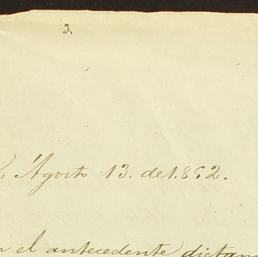 2.
Agosto 13. de 1.852.
el antecedente dictam